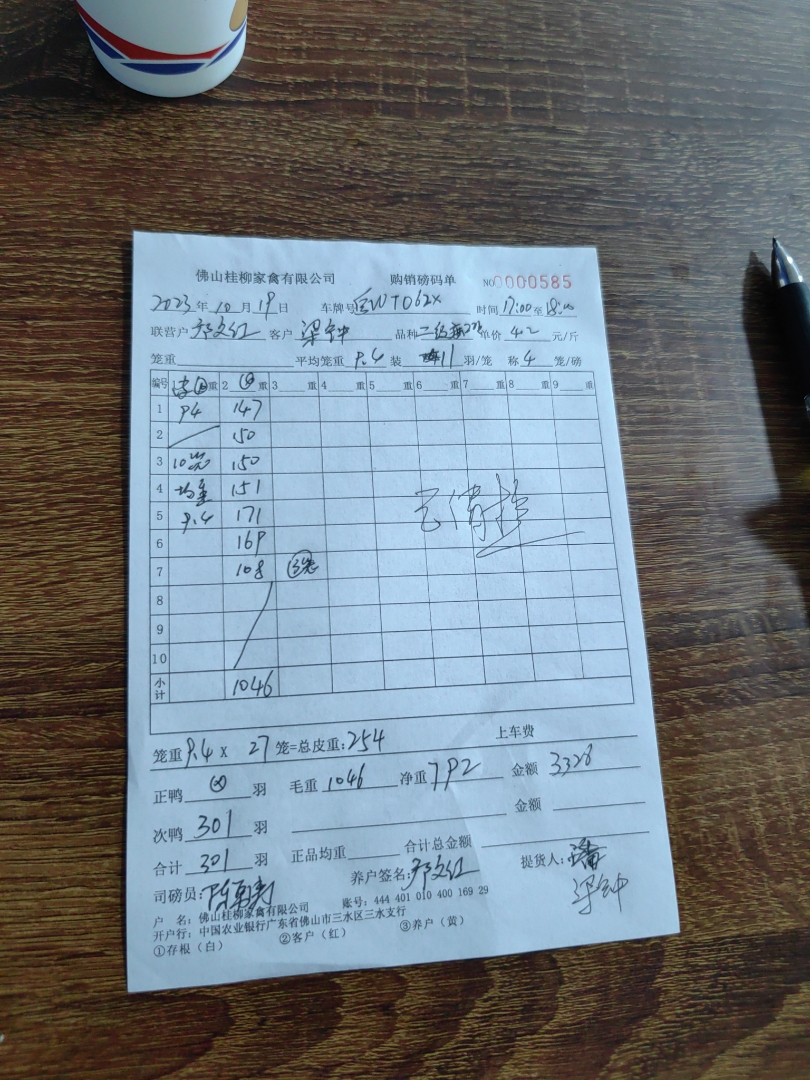 佛山桂柳家禽有限公司 购销磅码单 NO 0000585
2023年10月19日 车牌号 时间17:00至18:00
联营户 邓文红 客户 梁钟 品种 二级 单价 4.2 元/斤
笼重 平均笼重 9.4 装 11 羽/笼 称 4 笼/磅
编号 重 2 重 3 重 4 重 5 重 6 重 7 重 8 重 9 重
1 94 147
2 150
3 10笼 150
4 均重 151
5 9.4 171
6 169
7 108 3笼
8
9
10
小计 1046
笼重 9.4 X 27 笼=总皮重:254 上车费
正鸭 羽 毛重 1046 净重 792 金额 3328
次鸭 301 羽 金额
合计 301 羽 正品均重 合计总金额
司磅员: 养户签名: 邓文红 提货人: 梁钟
户 名: 佛山桂柳家禽有限公司 账号: 444 401 010 400 169 29
开户行: 中国农业银行广东省佛山市三水区三水支行
①存根（白） ②客户（红） ③养户（黄）